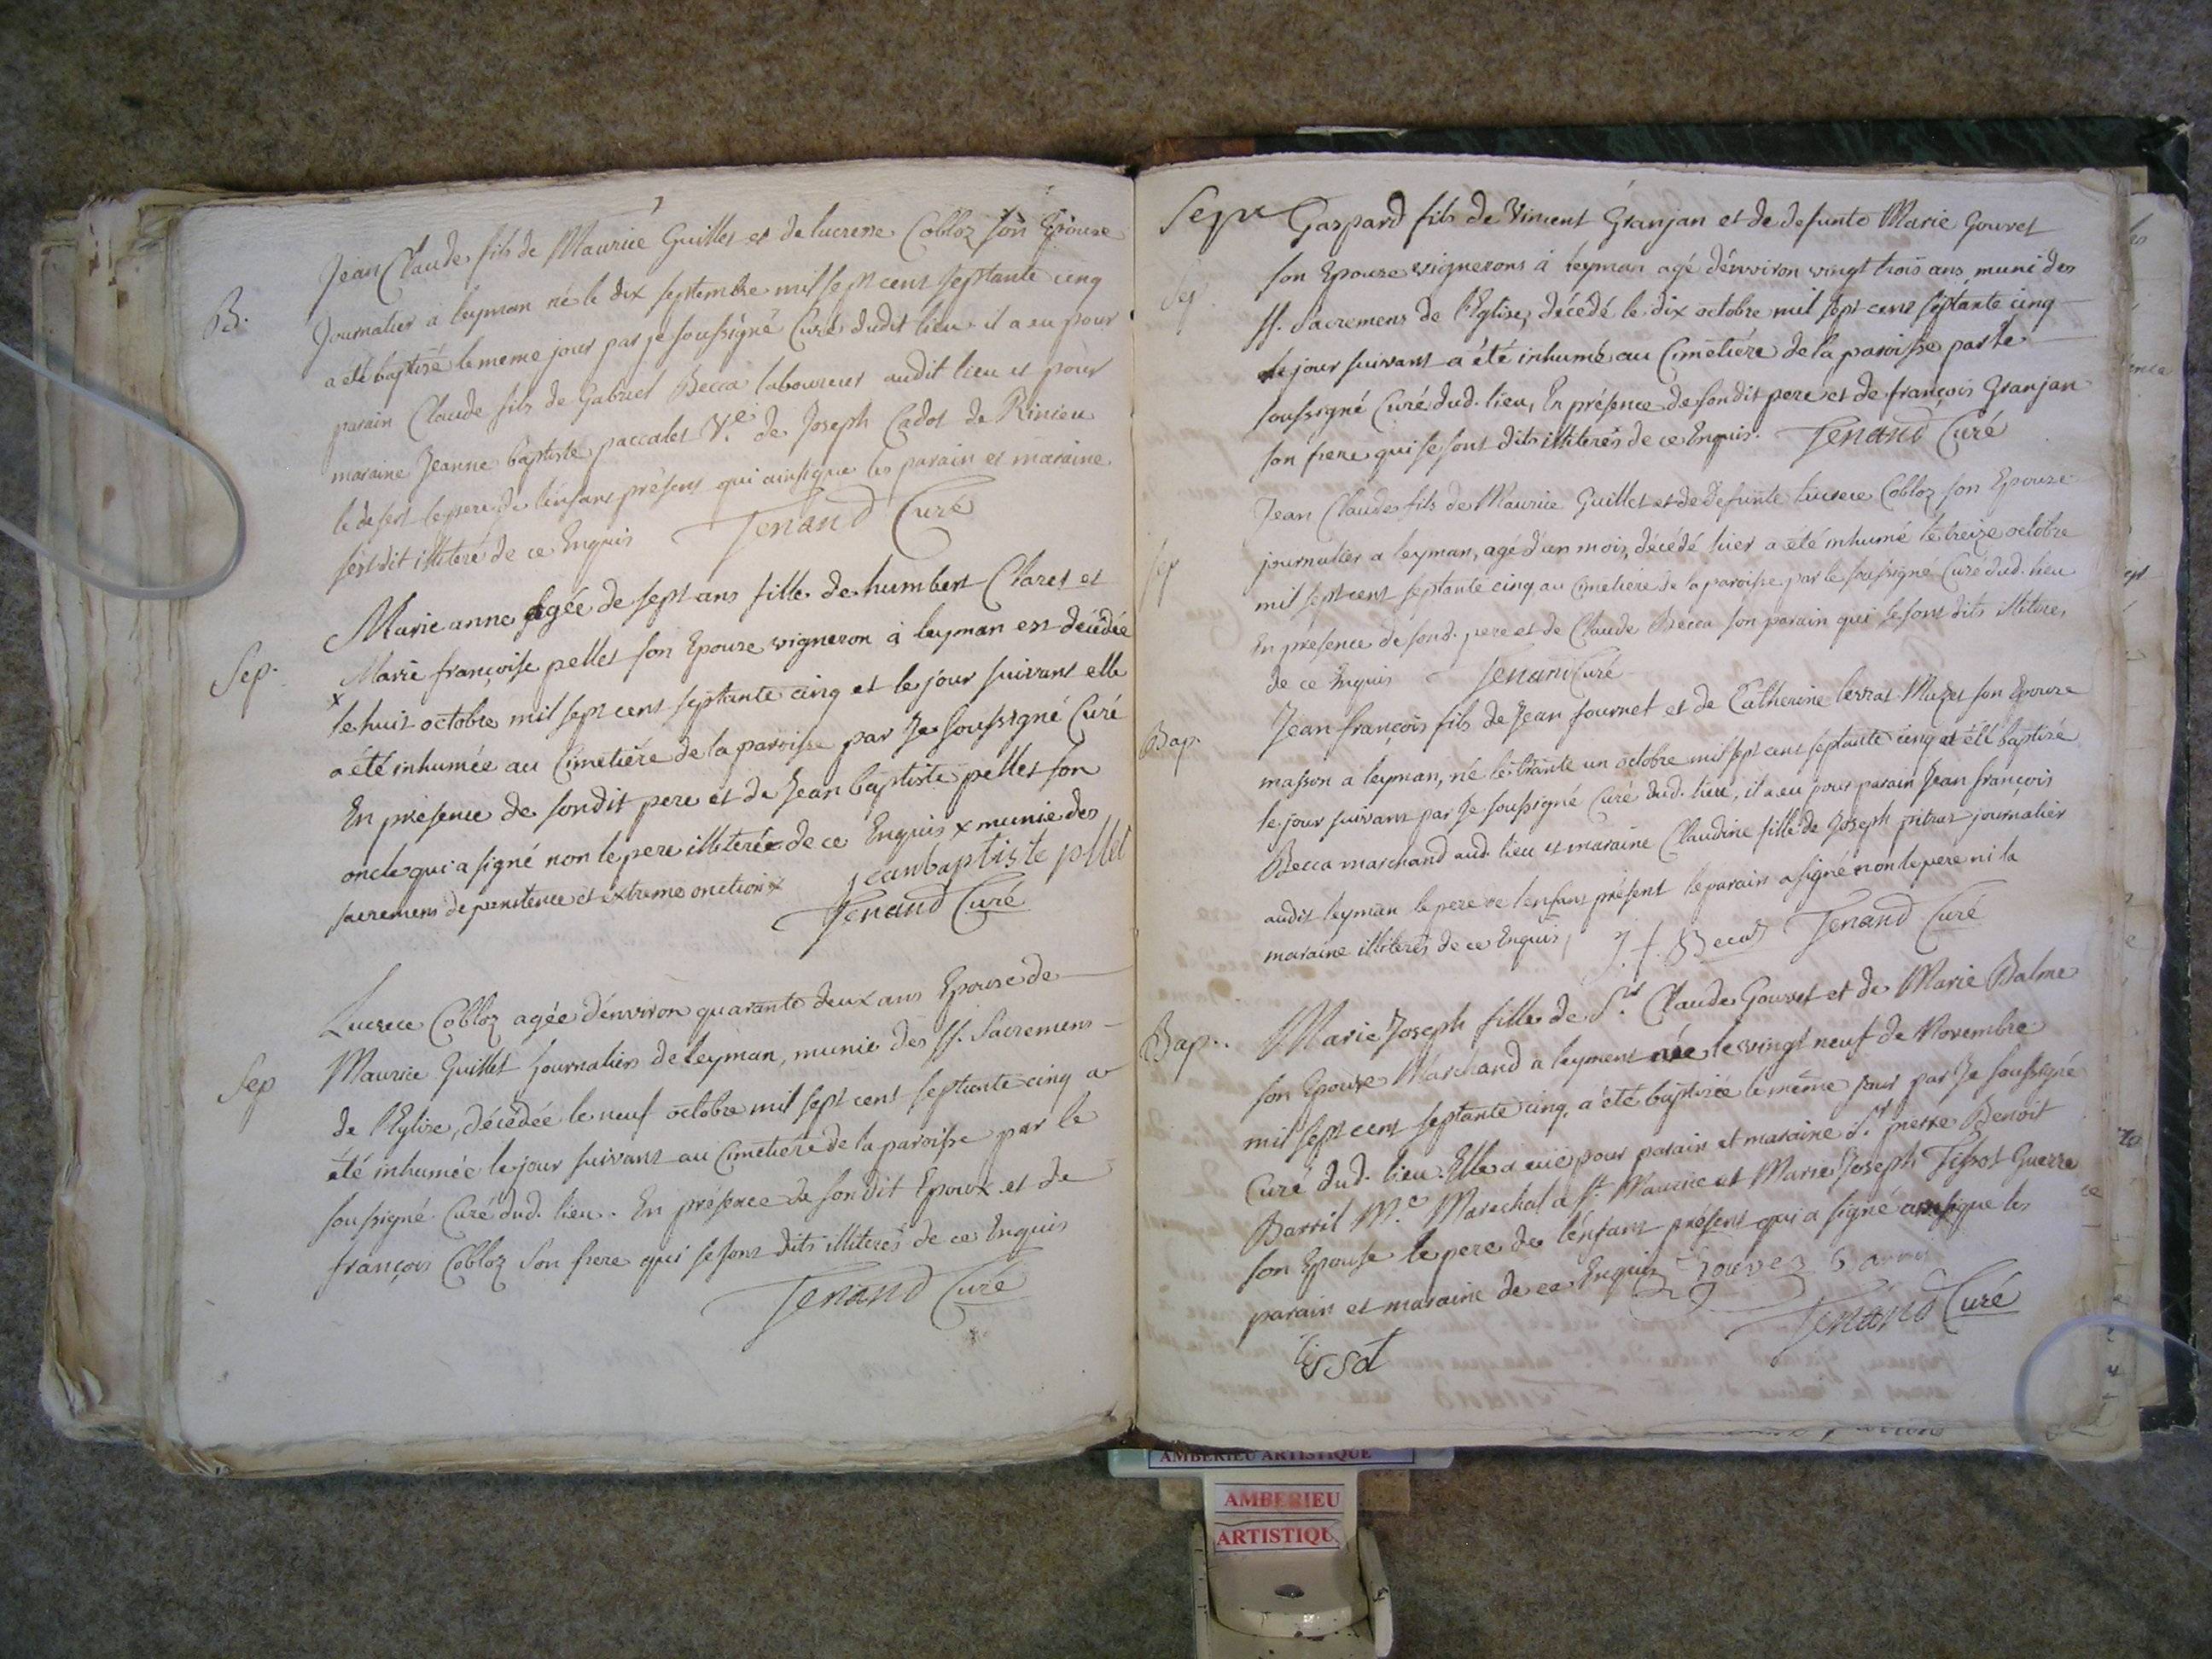 Jean Claude fils de Maurice Guillet et de lucresse Cobloz son Epouse
B.
Journalier a leyman né le dix septembre mil sept cent septante cinq
a été baptisé le meme jour par je soussigné Curé dudit lieu il a eu pour
parain Claude fils de Gabriel Becca laboureur audit lieu et pour
maraine Jeanne baptiste paccalet Ve. de Joseph Cadot de Rinieu
le desert le pere de l'enfant présent qui ainsi que les parain et maraine
s'est dit illiteré de ce Enquis Tenand Curé
Marie anne agée de sept ans fille de humbert Claret et
Sep.
Marie françoise pellet son Epouse vigneron à leyman est decedée
x
le huit octobre mil sept cent septante cinq et le jour suivant elle
a été inhumée au Cimetiére de la paroisse par Je soussigné Curé
En présence de sondit pere et de Jean baptiste pellet son
oncle qui a signé non le pere illiteré de ce Enquis x munie des
sacremens de penitence et extreme onction x jeanbaptiste pllet
Tenand Curé
Lucrece Cobloz agée d'environ quarante deux ans Epouse de
Sep
Maurice Guillet Journalier de leyman, munie des SS. Sacremens
de l'Eglise, décédée le neuf octobre mil sept cent septante cinq a
été inhumée le jour suivant au Cimetiére de la paroisse par le
soussigné Curé dud. lieu. En présence de son dit Epoux et de
françois Cobloz son frere qui se sont dits illiterés de ce Enquis
Tenand Curé
Sepre Gaspard fils de Vincent Granjan et de defunte Marie Gouvet
Sep.
son Epouse vignerons à leyman agé d'environ vingt trois ans muni des
SS. Sacremens de l'Eglise, décédé le dix octobre mil sept cent septante cinq
le jour suivant a été inhumé au Cimetiére de la paroisse par le
soussigné Curé dud. lieu, En présence de sondit pere et de françois Granjan
son frere qui se sont dits illiterés de ce Enquis. Tenand Curé
Jean Claude fils de Maurice Guillet et de defunte lucrece Cobloz son Epouse
Sep
journalier a leyman, agé d'un mois, décédé hier a été inhumé le treize octobre
mil sept cent septante cinq au Cimetiere de la paroisse par le soussigné Curé dud. lieu
En presence de sond. pere et de Claude Becca son parain qui se sont dits illiteres
de ce Enquis Tenand Curé
Jean françois fils de Jean fournet et de Catherine levrat Muzet son Epouse
Bap.
masson a leyman, né le trante un octobre mil sept cent septante cinq et été baptisé
le jour suivant par Je soussigné Curé dud. lieu, il a eu pour parain Jean françois
Becca marchand aud. lieu et maraine Claudine fille de Joseph pitrat journalier
audit leyman le pere de l'enfant présent le parain a signé non le pere ni la
maraine illiterés de ce Enquis, J. f. Becca Tenand Curé
Marie Joseph fille de Sr. Claude Gouvet et de Marie Balme
Bap.
son Epouse Marchand a leyment née le vingt neuf de Novembre
mil sept cent septante cinq, a été baptisée le même jour par Je soussigné
Curé dud. lieu. Elle a eüe pour parain et maraine Sr. pierre Benoit
Barril Me. Marechal a St. Maurice et Marie Joseph Tissot Guerre
son Epouse le pere de l'enfant présent qui a signé ainsi que les
parain et maraine de ce Enquis Gouvez
Tenand Curé
tissot
AMBERIEU ARTISTIQUE
AMBERIEU
ARTISTIQU